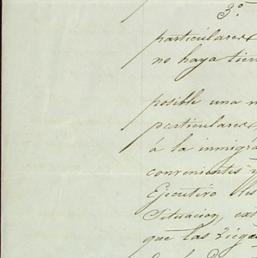 3.º
particulares
no haya tien
posible una m
particulares,
á la inmigra
convenientes y
Ejecutivo
Situacion,
que las